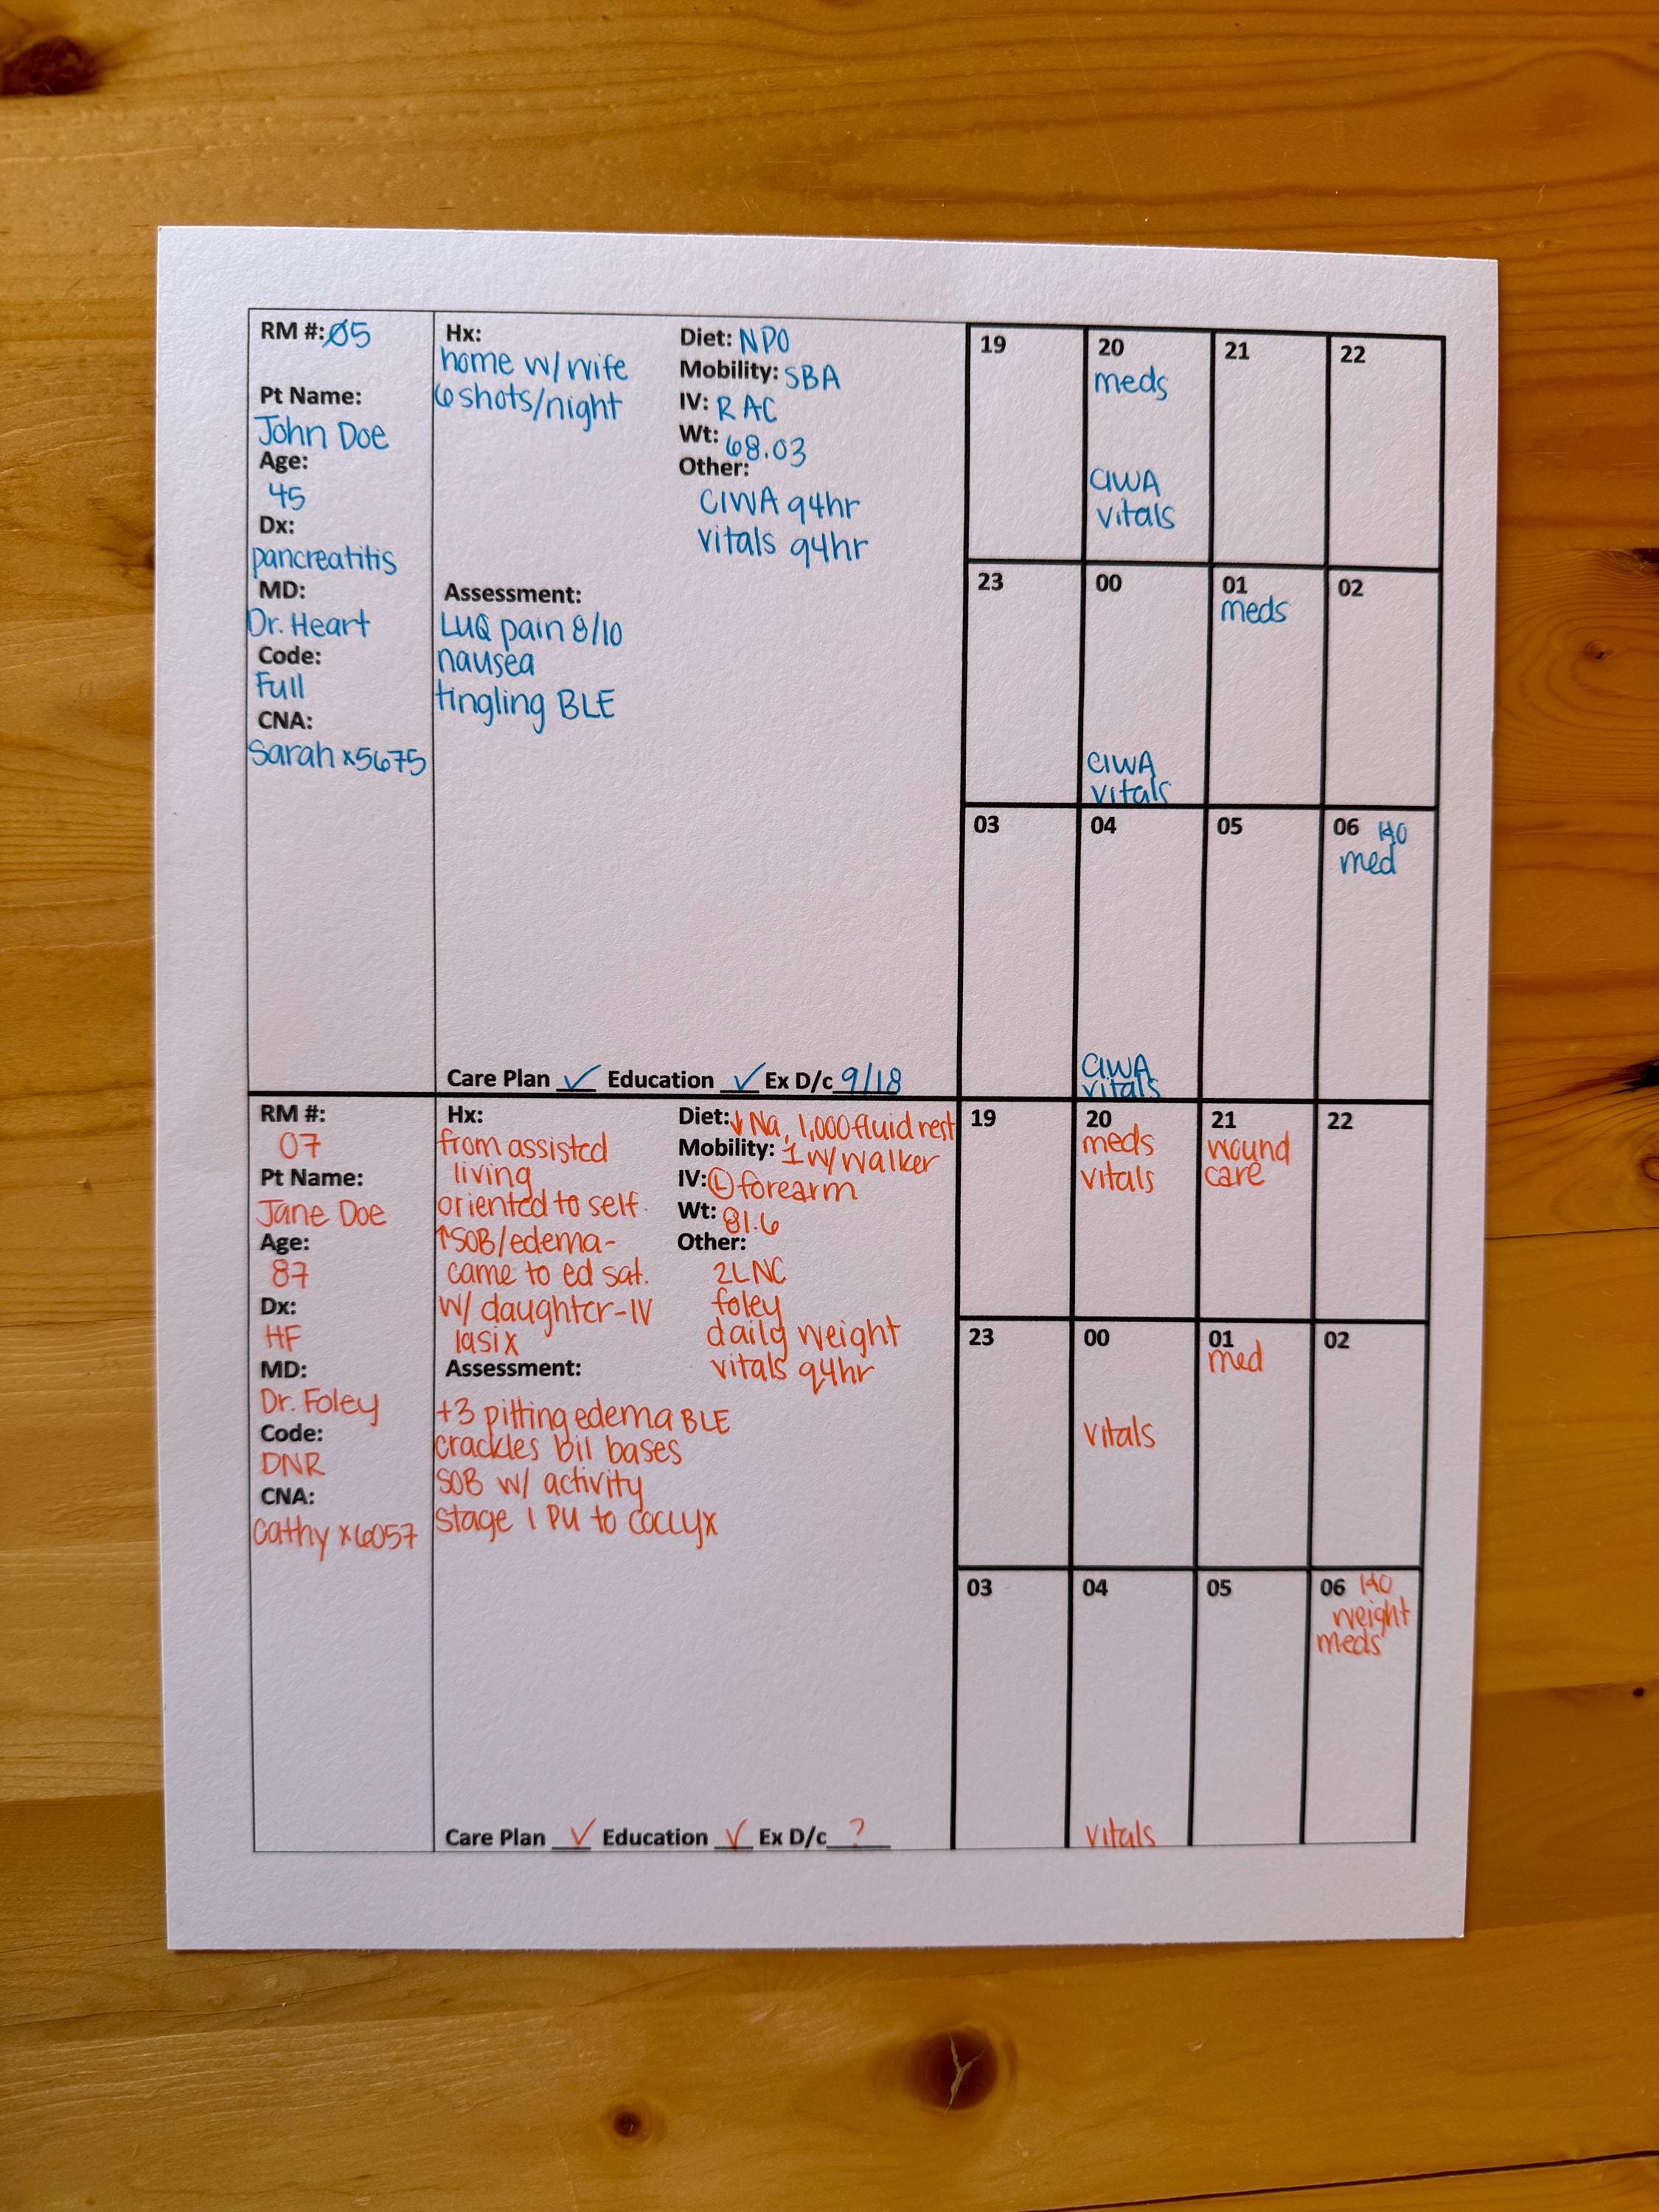 RM #: Ø5
Pt Name:
John Doe
Age:
45
Dx:
pancreatitis
MD:
Dr. Heart
Code:
Full
CNA:
Sarah x5675
Hx:
home w/ wife
6 shots/night
Diet: NPO
Mobility: SBA
IV: R AC
Wt: 68.03
Other:
CIWA q4hr
vitals q4hr
Assessment:
LUQ pain 8/10
nausea
tingling BLE
Care Plan ✓ Education ✓ Ex D/c 9/18
19
20
meds
CIWA
vitals
21
22
23
00
CIWA
vitals
01
meds
02
03
04
CIWA
vitals
05
06 I&O
med
RM #:
07
Pt Name:
Jane Doe
Age:
87
Dx:
HF
MD:
Dr. Foley
Code:
DNR
CNA:
Cathy x6057
Hx:
from assisted
living
oriented to self
↑SOB/edema-
came to ed sat.
w/ daughter-IV
lasix
Diet: ↓Na, 1,000 fluid rest
Mobility: 1 w/ walker
IV: Ⓛ forearm
Wt: 81.6
Other:
2LNC
foley
daily weight
vitals q4hr
Assessment:
+3 pitting edema BLE
crackles bil bases
SOB w/ activity
Stage 1 PU to coccyx
Care Plan ✓ Education ✓ Ex D/c ?
19
20
meds
vitals
21
wound
care
22
23
00
vitals
01
med
02
03
04
vitals
05
06 I&O
weight
meds